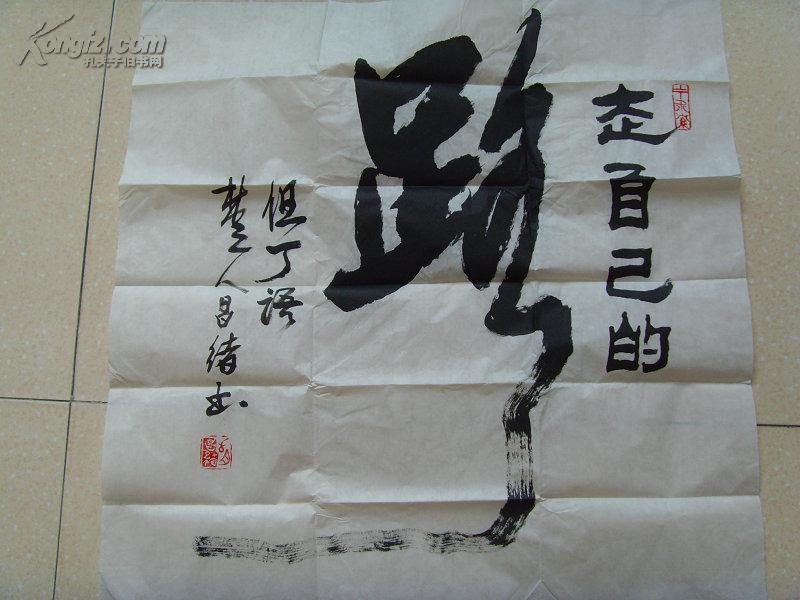 走自己的
路
但丁语
楚人昌绪书
Kongfz.com
孔夫子旧书网